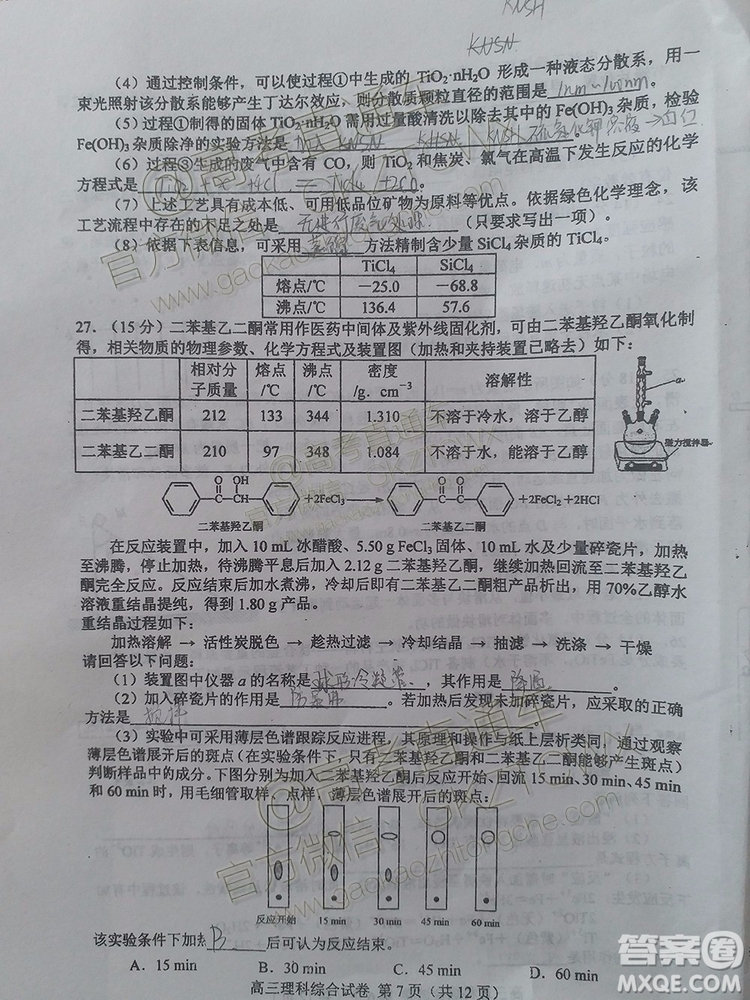 KNSH
KHSN
（4）通过控制条件，可以使过程①中生成的 TiO₂·nH₂O 形成一种液态分散系，用一
束光照射该分散系能够产生丁达尔效应，则分散质颗粒直径的范围是 1nm~100nm 。
（5）过程①制得的固体 TiO₂·nH₂O 需用过量酸清洗以除去其中的 Fe(OH)₃ 杂质，检验
Fe(OH)₃ 杂质除净的实验方法是
（6）过程③生成的废气中含有 CO，则 TiO₂ 和焦炭、氯气在高温下发生反应的化学
方程式是 。
（7）上述工艺具有成本低、可用低品位矿物为原料等优点。依据绿色化学理念，该
工艺流程中存在的不足之处是 （只要求写出一项）。
（8）依据下表信息，可采用 蒸馏 方法精制含少量 SiCl₄ 杂质的 TiCl₄。
TiCl₄ SiCl₄
熔点/℃ －25.0 －68.8
沸点/℃ 136.4 57.6
27．（15 分）二苯基乙二酮常用作医药中间体及紫外线固化剂，可由二苯基羟乙酮氧化制
得，相关物质的物理参数、化学方程式及装置图（加热和夹持装置已略去）如下：
相对分子质量 熔点/℃ 沸点/℃ 密度/g．cm⁻³ 溶解性
二苯基羟乙酮 212 133 344 1.310 不溶于冷水，溶于乙醇
二苯基乙二酮 210 97 348 1.084 不溶于水，能溶于乙醇
a
磁力搅拌器
O OH +2FeCl₃ → O O +2FeCl₂+2HCl
二苯基羟乙酮 二苯基乙二酮
在反应装置中，加入 10 mL 冰醋酸、5.50 g FeCl₃ 固体、10 mL 水及少量碎瓷片，加热
至沸腾，停止加热，待沸腾平息后加入 2.12 g 二苯基羟乙酮，继续加热回流至二苯基羟乙
酮完全反应。反应结束后加水煮沸，冷却后即有二苯基乙二酮粗产品析出，用 70%乙醇水
溶液重结晶提纯，得到 1.80 g 产品。
重结晶过程如下：
加热溶解 → 活性炭脱色 → 趁热过滤 → 冷却结晶 → 抽滤 → 洗涤 → 干燥
请回答以下问题：
（1）装置图中仪器 a 的名称是 球形冷凝管 ，其作用是 。
（2）加入碎瓷片的作用是 防暴沸 。若加热后发现未加碎瓷片，应采取的正确
方法是 。
（3）实验中可采用薄层色谱跟踪反应进程，其原理和操作与纸上层析类同，通过观察
薄层色谱展开后的斑点（在实验条件下，只有二苯基羟乙酮和二苯基乙二酮能够产生斑点）
判断样品中的成分。下图分别为加入二苯基羟乙酮后反应开始、回流 15 min、30 min、45 min
和 60 min 时，用毛细管取样、点样，薄层色谱展开后的斑点：
反应开始 15 min 30 min 45 min 60 min
该实验条件下加热 B 后可认为反应结束。
A．15 min B．30 min C．45 min D．60 min
高三理科综合试卷 第 7 页（共 12 页）
@高考直通车
官方微信：GKZTCWX
官方微信：www.gaokaozhitongche.com
答案圈
MXQE.COM